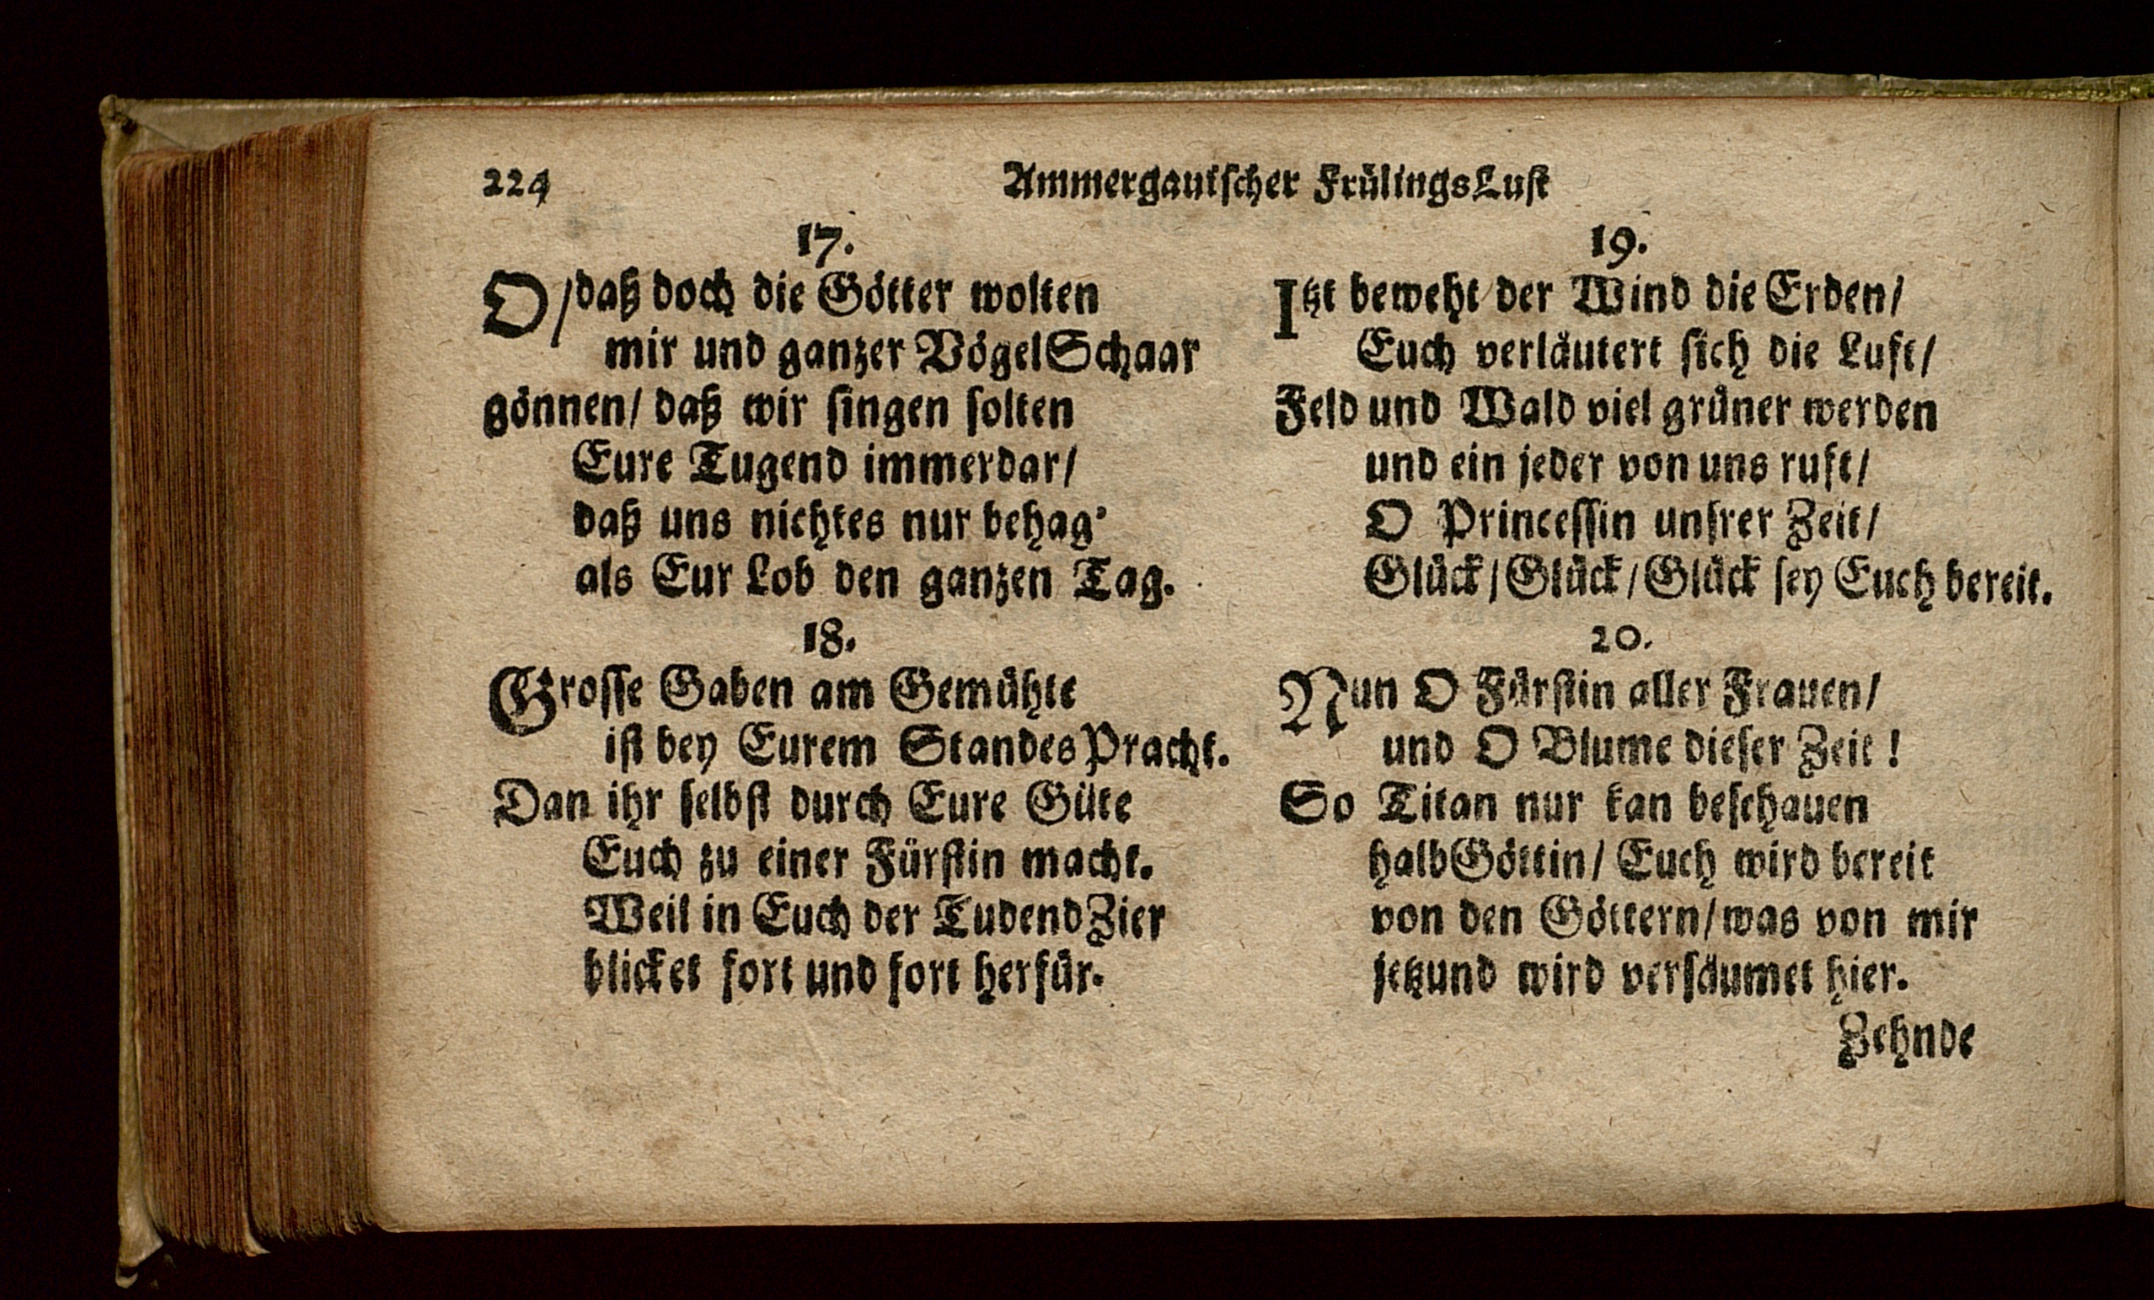 224 Ammergauischer FrülingsLust
17.
O/daß doch die Götter wolten
mir und ganzer VögelSchaar
gönnen/ daß wir singen solten
Eure Tugend immerdar/
daß uns nichtes nur behag'
als Eur Lob den ganzen Tag.
18.
Grosse Gaben am Gemühte
ist bey Eurem StandesPracht.
Dan ihr selbst durch Eure Güte
Euch zu einer Fürstin macht.
Weil in Euch der TudendZier
blicket fort und fort herfür.
19.
Itzt beweht der Wind die Erden/
Euch verläutert sich die Luft/
Feld und Wald viel grüner werden
und ein jeder von uns ruft/
O Princessin unsrer Zeit/
Glück/Glück/Glück sey Euch bereit.
20.
Nun O Fürstin aller Frauen/
und O Blume dieser Zeit!
So Titan nur kan beschauen
halbGöttin/ Euch wird bereit
von den Göttern/was von mir
jetzund wird versäumet hier.
Zehnde